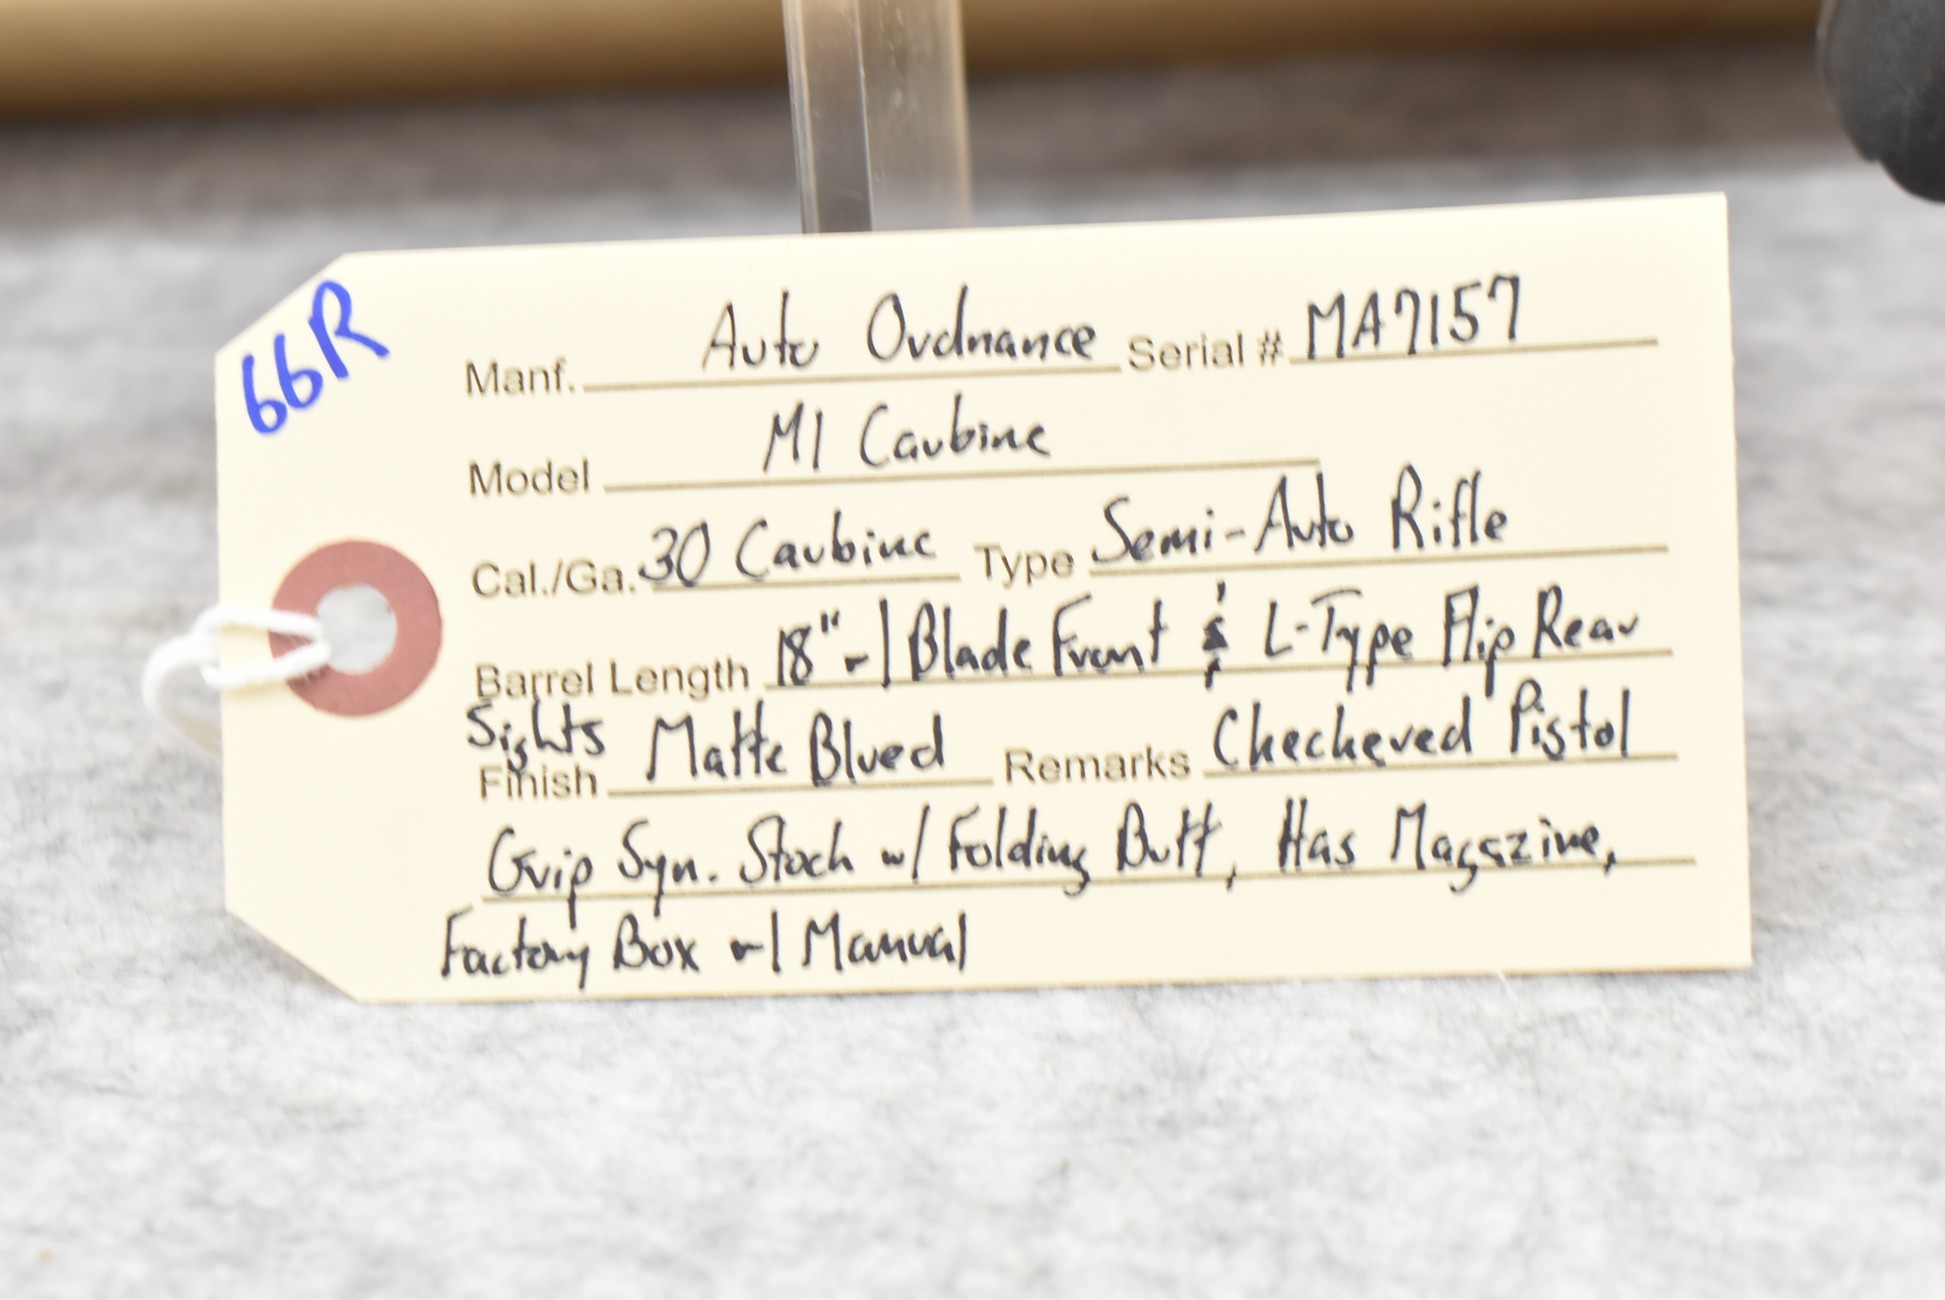 66R
Manf. Auto Ordnance Serial # MA7157
Model M1 Carbine
Cal./Ga. 30 Carbine Type Semi-Auto Rifle
Barrel Length 18" w/ Blade Front & L-Type Flip Rear
Sights
Finish Matte Blued Remarks Checkered Pistol
Grip Syn. Stock w/ Folding Butt, Has Magazine,
Factory Box w/ Manual